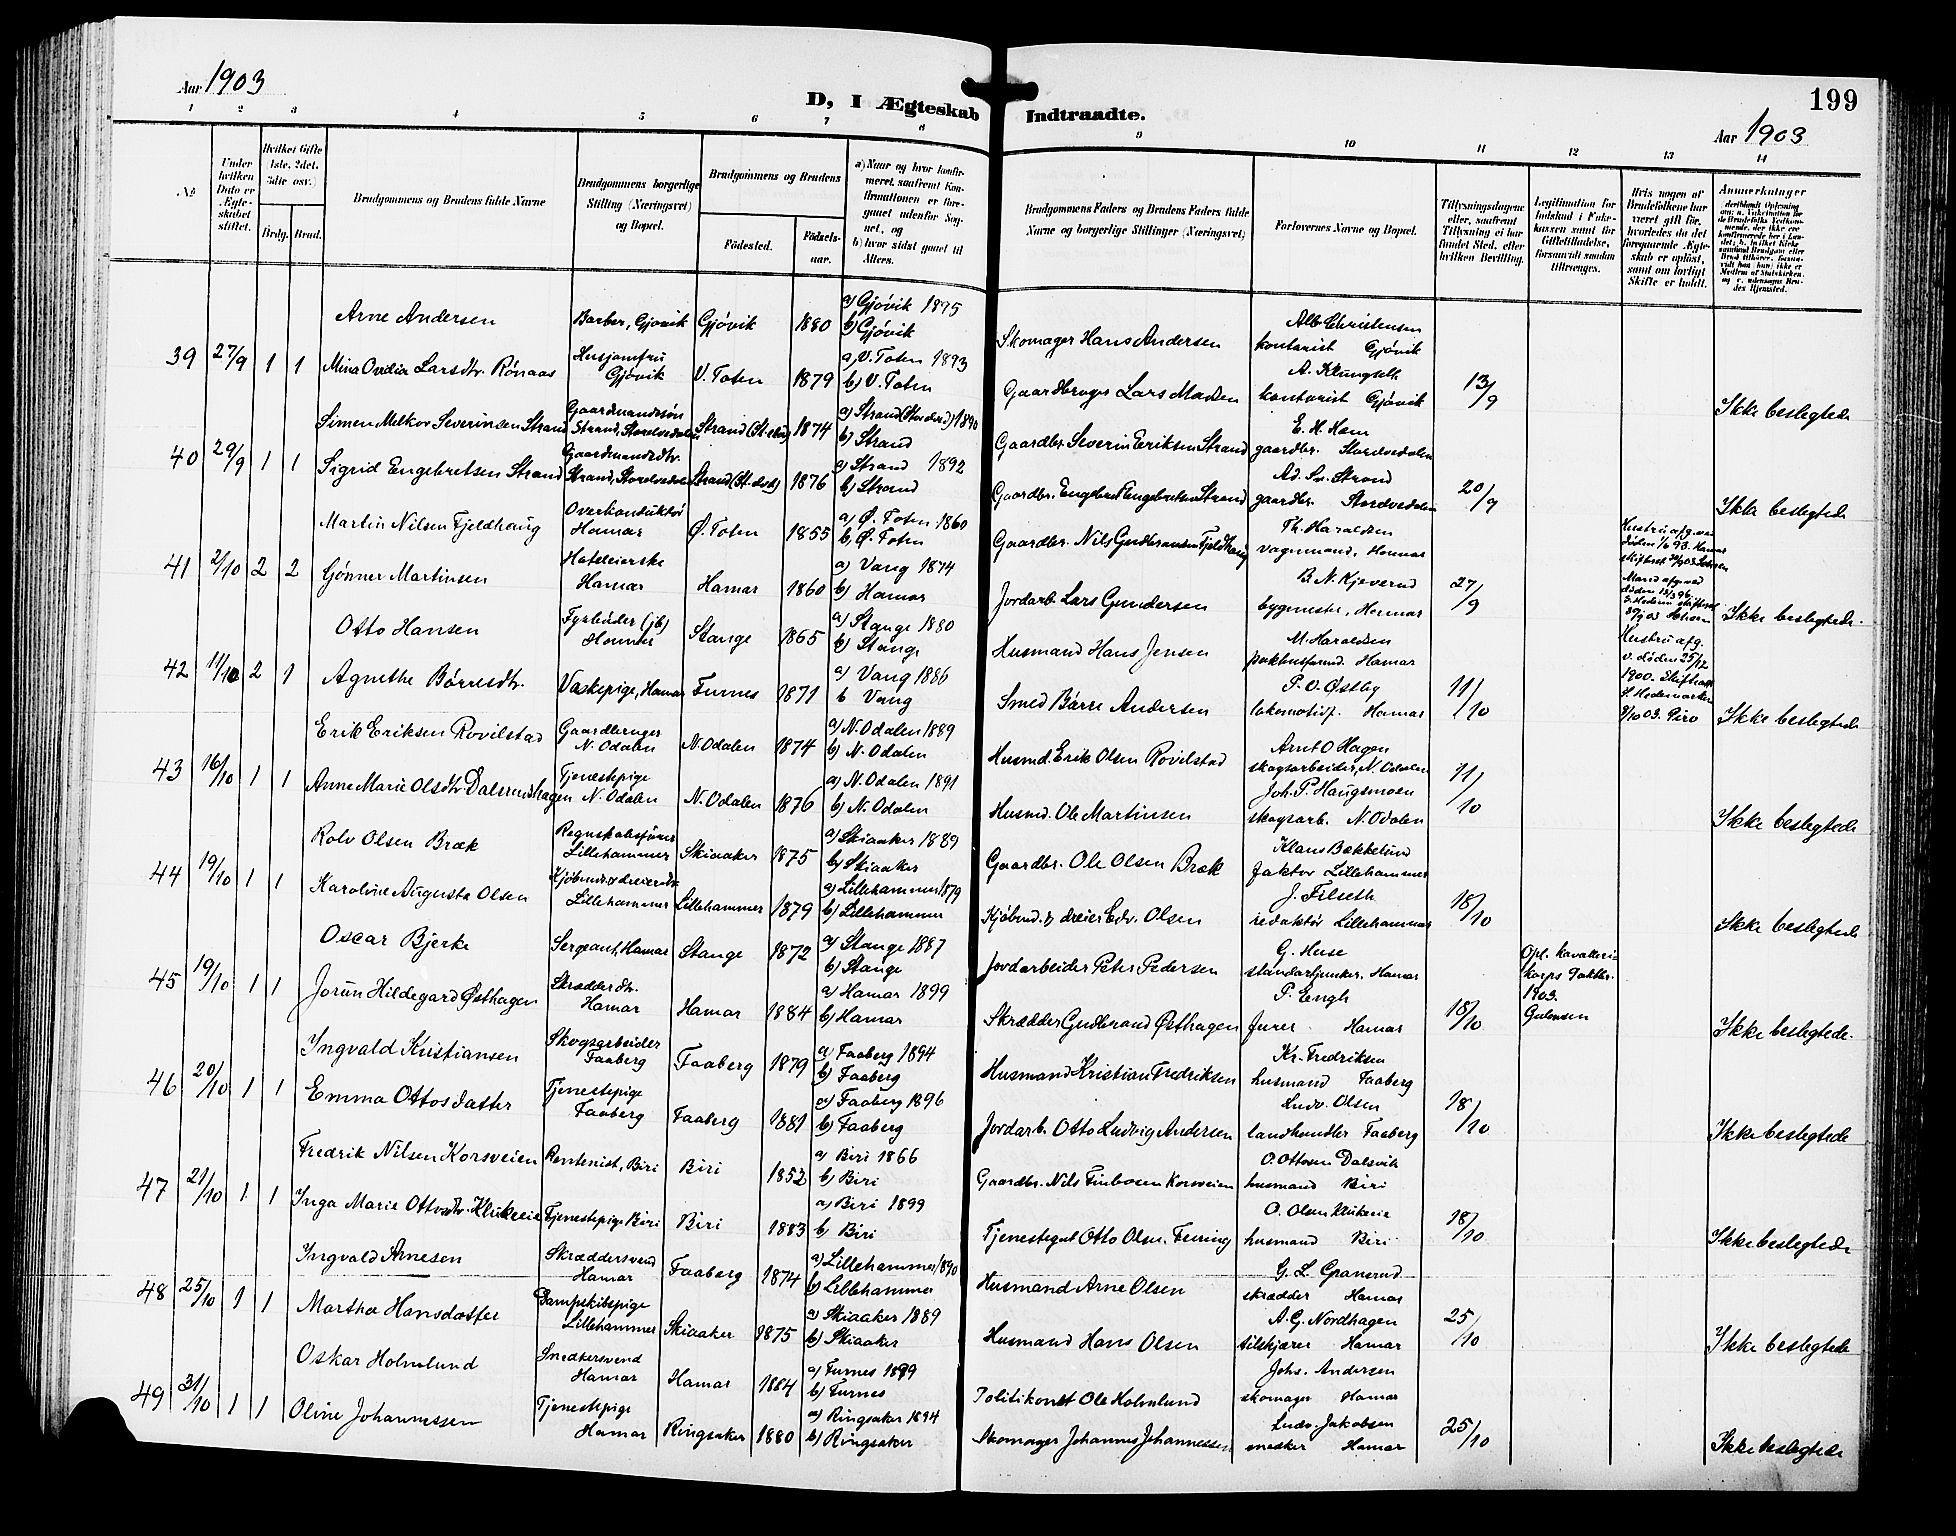 Aar 1903
D, I Ægteskab Indtraadte.
199
Aar 1903
1 2 3 4 5 6 7 8 9 10 11 12 13 14
No
Under hvilken Dato er Ægteskabet stiftet.
Hvilket Gifte 1ste, 2det, 3die osv.
Brdg. Brud.
Brudgommens og Brudens fulde Navne
Brudgommens borgerlige Stilling (Næringsvei) og Bopæl.
Brudgommens og Brudens
Födested.
Födsels-aar.
a) Naar og hvor konfirmeret, saafremt Konfirmationen er foregaaet udenfor Sognet, og
b) hvor sidst gaaet til Alters.
Brudgommens Faders og Brudens Faders fulde Navne og borgerlige Stillinger (Næringsvei)
Forlovernes Navne og Bopæl.
Tillysningsdagene eller, saafremt Tillysning ei har fundet Sted, efter hvilken Bevilling.
Legitimation for Indskud i Enkekassen samt for Giftetilladelse, forsaavidt saadan tiltrænges.
Hvis nogen af Brudefolkene har været gift før, hvorledes da det foregaaende Ægteskab er opløst, samt om lovligt Skifte er holdt.
Anmerkninger
39 27/9 1 1
Arne Andersen Barber, Gjøvik Gjøvik 1880 a) Gjøvik 1895 b) Gjøvik Skomager Hans Andersen Alb Christensen kontorist Gjøvik
Mina Ovidia Larsdtr. Rønaas Husjomfru Gjøvik V. Toten 1879 a) V. Toten 1893 b) V. Toten Gaardbruger Lars Madsen A. Klungseth kontorist Gjøvik 13/9 Ikke beslegtede
40 29/9 1 1
Simen Melkior Severinsen Strand Gaardmandssøn Strand, Storelvedalen Strand (St.elvd) 1874 a) Strand (Storelved) 1890 b) Strand Gaardbr. Severin Eriksen Strand E. H. Hem gaardbr. Storelvedalen
Sigrid Engebretsen Strand Gaardmandsdtr. Strand, Storelvedalen Strand (St. elvd) 1876 a) Strand 1892 b) Strand Gaardbr. Engebret Engebretsen Strand Ad. Sv. Strand gaardbr. Storelvedalen 20/9 Ikke beslegtede
41 2/10 2 2
Martin Nilsen Fjeldhaug Overkonduktør Hamar Ø. Toten 1855 a) Ø. Toten 1860 b) Ø. Toten Gaardbr. Nils Gudbransen Fjeldhaug Th. Haraldsen vognmand, Hamar
Gønner Martinsen Hoteleierske Hamar Hamar 1860 a) Vang 1874 b) Hamar Jordarb. Lars Gundersen B. N. Kjeverud bygmester, Hamar 27/9 Ikke beslegtede.
42 11/10 2 1
Otto Hansen Fyrbøder (jb) Hamar Stange 1865 a) Stange 1880 b) Stange Husmand Hans Jensen M. Haraldsen pakhusformd. Hamar Hustru afg. v. døden 25/12 1900.
Agnethe Børresdtr. Vaskepige, Hamar Furnes 1871 a) Vang 1886 b Vang Smed Børre Andersen P. O. Østby lokomotivf. Hamar 11/10 Ikke beslegtede
43 16/10 1 1
Erik Eriksen Rovilstad Gaardbruger N. Odalen N. Odalen 1874 a) N. Odalen 1889 b) N. Odalen Husmd. Erik Olsen Rovilstad Arnt O Hagen skogsarbeider, N. Odalen
Anne Marie Olsdtr. Dalsrudshagen Tjenestepige N. Odalen N. Odalen 1876 a) N. Odalen 1891 b) N. Odalen Husmd. Ole Martinsen Joh. P. Haugsmoen skogsarb. N. Odalen 11/10 Ikke beslegtede
44 19/10 1 1
Rolv Olsen Bræk Regnskabsfører Lillehammer Skiaaker 1875 a) Skiaaker 1889 b) Skiaaker Gaardbr. Ole Olsen Bræk Klaus Bækkelund faktor Lillehammer
Karoline Augusta Olsen Lillehammer Lillehammer 1879 a) Lillehammer 1879 b) Lillehammer Kjøbmd. & dreier Edv. Olsen J. Filseth redaktør Lillehammer 18/10 Ikke beslegtede
45 19/10 1 1
Oscar Bjerke Sergeant, Hamar Stange 1872 a) Stange 1887 b) Stange Jordarbeider Peter Pedersen G. Huse standartjunker, Hamar
Jorun Hildegard Østhagen Skrædderdtr. Hamar Hamar 1884 a) Hamar 1899 b) Hamar Skrædder Gudbrand Østhagen P. Engh furer. Hamar 18/10 Ikke beslegtede.
46 20/10 1 1
Ingvald Kristiansen Skogsarbeider Faaberg Faaberg 1879 a) Faaberg 1894 b) Faaberg Husmand Kristian Fredriksen Kr. Fredriksen husmand Faaberg
Emma Ottosdatter Tjenestepige Faaberg Faaberg 1881 a) Faaberg 1896 b) Faaberg Jordarb. Otto Ludvig Andersen Ludv. Olsen landhandler Faaberg 18/10 Ikke beslegtede
47 21/10 1 1
Fredrik Nilsen Korsveien Rentenist, Biri Biri 1852 a) Biri 1866 b) Biri Gaardbr. Nils Finbosen Korsveien O. Ottosen Dalsvik husmand Biri
Inga Marie Ottosdtr. Klukeeie Tjenestepige Biri Biri 1883 a) Biri 1899 b) Biri Tjenestegut Otto Olsen Feiring O. Olsen Klukeeie husmand Biri 18/10 Ikke beslegtede
48 25/10 1 1
Ingvald Arnesen Skræddersvend Hamar Faaberg 1874 a) Lillehammer 1890 b) Lillehammer Husmand Arne Olsen G. L. Granerud skrædder Hamar
Martha Hansdatter Dampskibspige Lillehammer Skiaaker 1875 a) Skiaaker 1889 b) Skiaaker Husmand Hans Olsen A. G. Nordhagen tilskjærer Hamar 25/10 Ikke beslegtede
49 31/10 1 1
Oskar Holmlund Snedkersvend Hamar Hamar 1884 a) Furnes 1899 b) Furnes Politikonst Ole Holmlund Johs. Andersen skomager Hamar
Oline Johannessen Tjenestepige Hamar Ringsaker 1880 a) Ringsaker 1894 b) Ringsaker Skomager Johannes Johannessen Ludv. Jakobsen Hamar 25/10 Ikke beslegtede